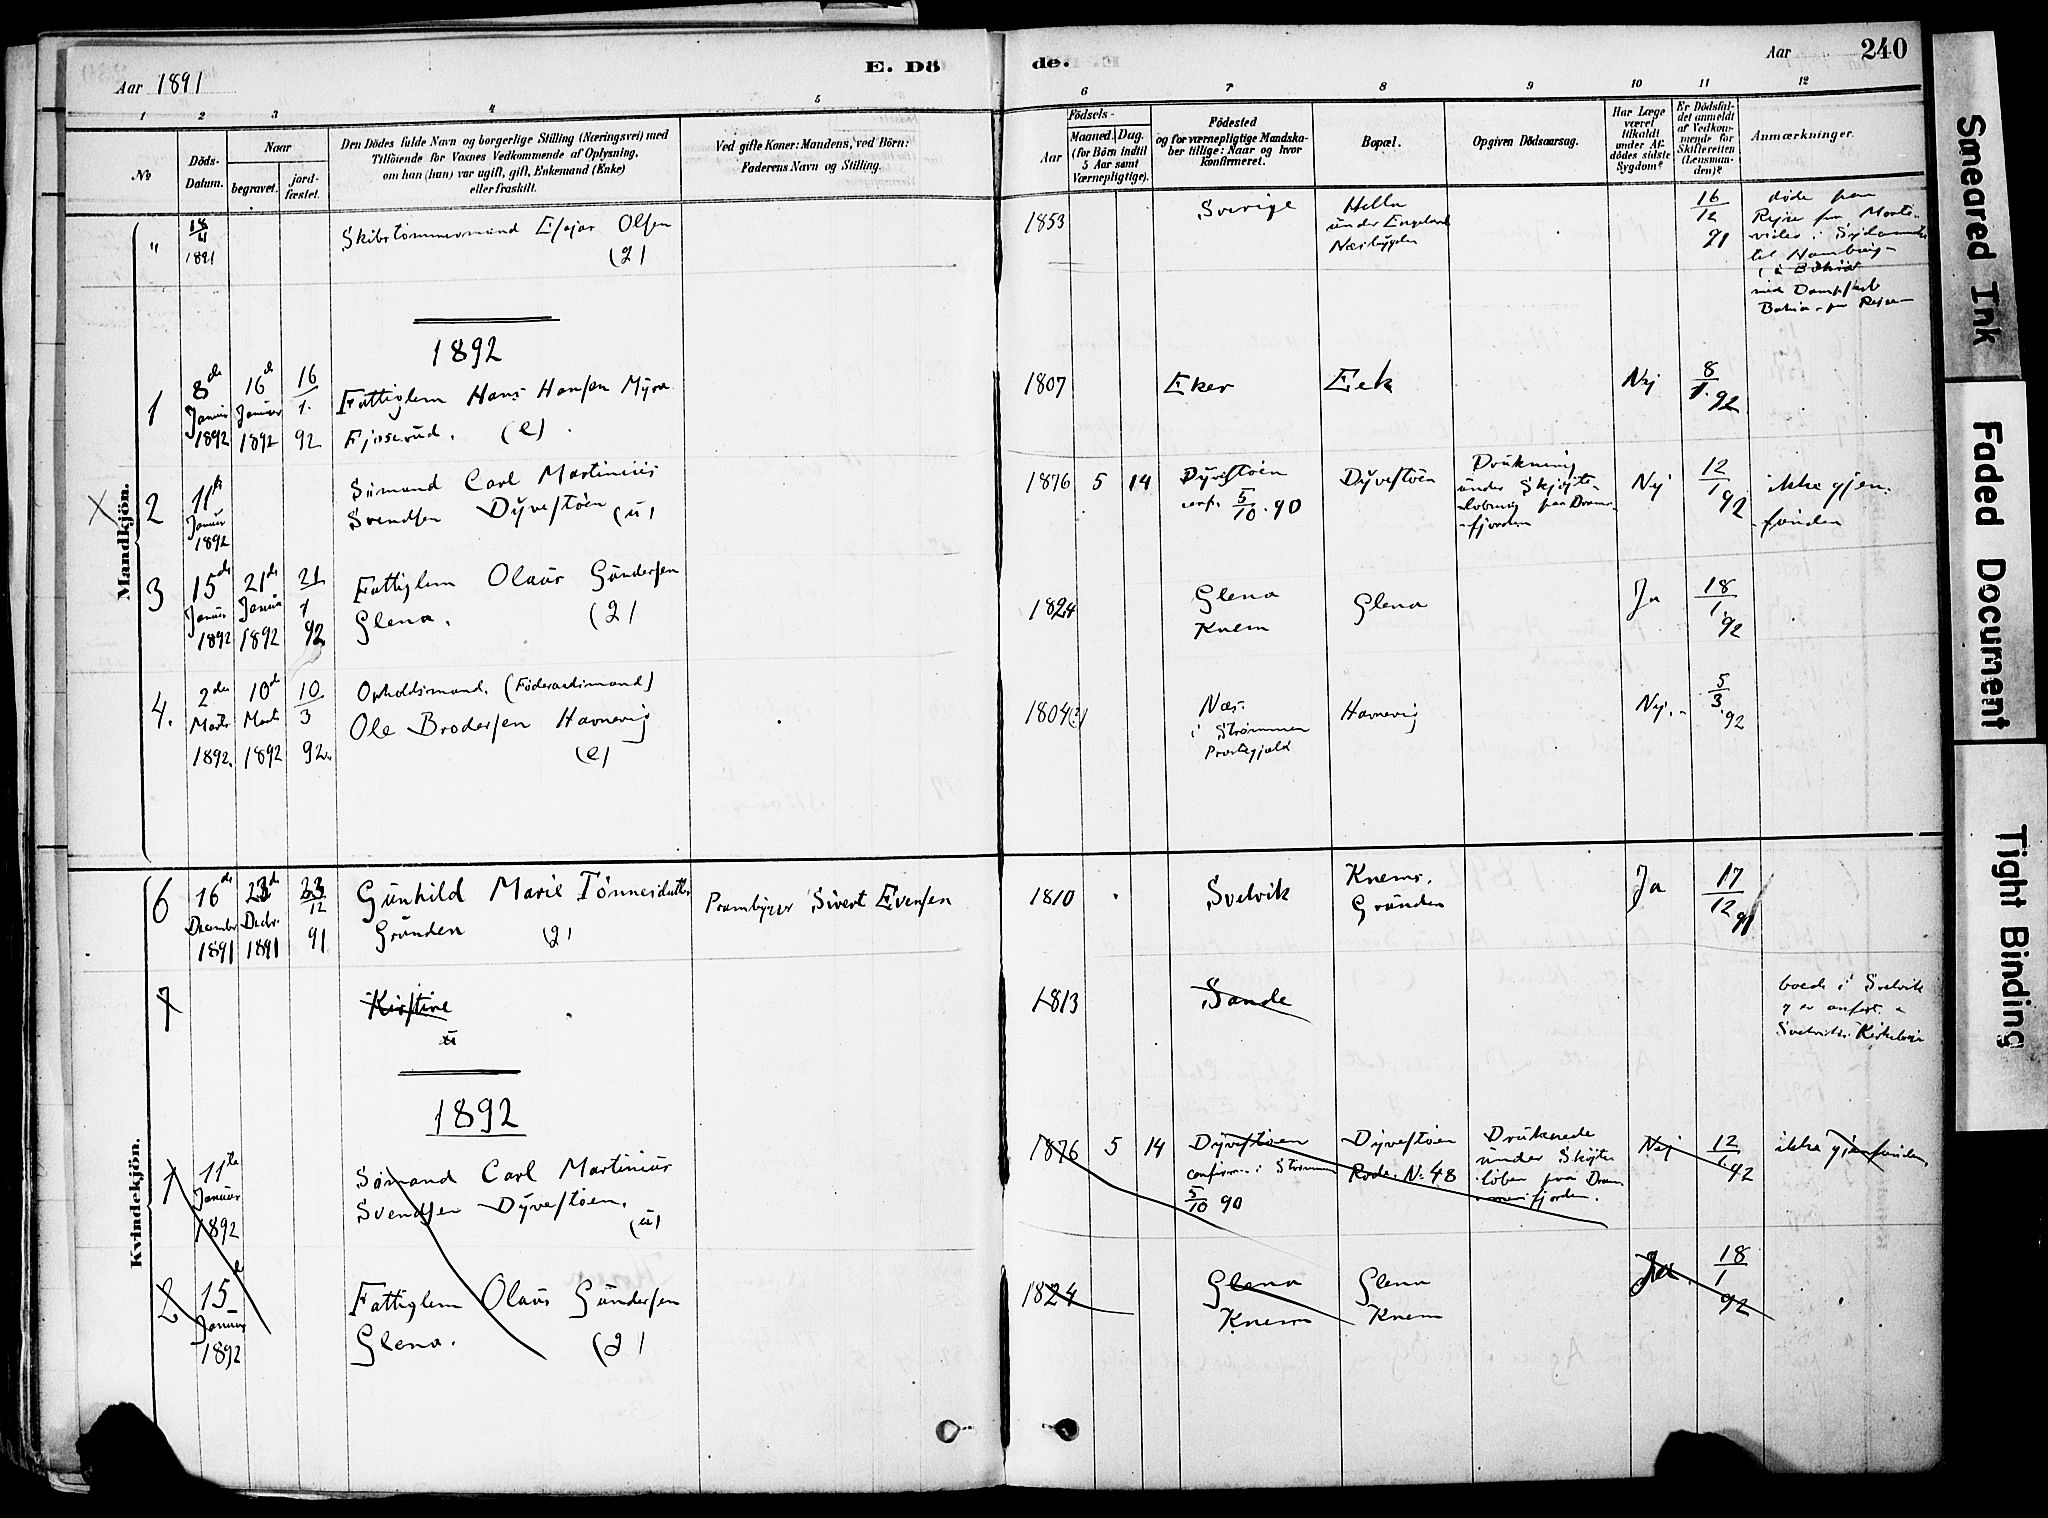 Aar 1891
E. Dö
de.
Aar
240
1 2 3 4 5 6 7 8 9 10 11 12
No
Döds-Datum.
Naar
begravet.
jord-fæstet.
Den Dödes fulde Navn og borgerlige Stilling (Næringsvei) med
Tilföiende for Voxnes Vedkommende af Oplysning,
om han (hun) var ugift, gift, Enkemand (Enke)
eller fraskilt.
Ved gifte Koner: Mandens, ved Börn:
Faderens Navn og Stilling.
Födsels-
Aar
Maaned. Dag.
(for Börn indtil
5 Aar samt
Værnepligtige).
Födested
og for værnepligtige Mandska-
ber tillige: Naar og hvor
Konfirmeret.
Bopæl.
Opgiven Dödsaarsag.
Har Læge
været
tilkaldt
under Af-
dödes sidste
Sygdom?
Er Dödsfal-
det anmeldt
af Vedkom-
mende for
Skifteretten
(Lensman-
den)?
Anmærkninger.
Mandkjön.
" 18/11 1891 Skibstømmermand Esajas Olsen (2)
1853 Sverige Hella under Næsbygden 16/12 91
døde paa
Rejse fra
til Hamburg
med Dampskib
Bahia
1892
1 8de Januar 1892 16de Januar 1892 16/1. 92 Fattiglem Hans Hansen Myra
Fjoserud. (e).
1807 Eker Eek Nej 8/1. 92
X 2 11te Januar 1892 Sømand Carl Martinius
Svendsen Dyvestøen (u)
1876 5 14 Dyvestøen conf. 5/10. 90 Dyvestøen
Drukning
under Skjøite-
løbning paa Drams-
fjorden
Nej 12/1 92 ikke gjen-
funden
3 15de Januar 1892 21de Januar 1892 21/1 92 Fattiglem Olaus Gundersen
Glena. (2)
1824 Glena Knem Glena Ja 18/1. 92
4. 2den Marts 1892. 10de Marts 1892 10/3 92. Opholdsmand. (Føderaadsmand)
Ole Brodersen Havnevig
(e)
1804(?) Næs i Strømmen Præstegjeld Havnevig Nej. 5/3. 92
Kvindekjön.
6 16de December 1891 23de Decbr. 1891 23/12 91 Gunhild Marie Tønnesdatter
Grunden (2)
Prambygger Sivert Evensen
1810 Svelvik Knems. Grunden Ja 17/12 91
7 Kirstine
u
1813 Sande
boede i Svelvik
og er anført i
Svelviks Kirkebog
1892
1 11te Januar 1892 Sømand Carl Martinius
Svendsen Dyvestøen.
(u)
1876 5 14 Dyvestøen
confirm. i Strømm
5/10 90
Dyvestøen
Rode. No: 48
Druknede
under Skøjte-
løben paa Dram-
mensfjorden.
Nej 12/1. 92 ikke gjenfunden.
2 15de Januar 1892 Fattiglem Olaus Gundersen
Glena. (2)
1824 Glena Knem Glena Knem Ja. 18/1 92
Smeared Ink
Faded Document
Tight Binding